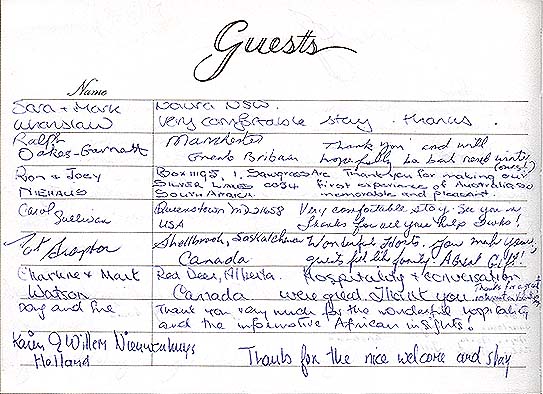 Guests
Name
Sara + Mark Nowra NSW.
Very comfortable stay. thanks.
Ralph Manchester Thank you and will
Oakes-Garnett Great Britain hopefully be back next winter
Ron & Joey Box 11195, 1, Sawgrass Thank you for making our
NIEHAUS SILVER LAKES 0054 first experience of Australia so
SOUTH AFRICA memorable and pleasant.
Carol Sullivan Queenstown MD 21658 Very comfortable stay. See you in
USA Thanks for all your help
Shellbrook, Saskatchewan Wonderful Hosts. You make your
Canada guests feel like family! A Great
Charlene & Mark Red Deer, Alberta. Hospitality & conversation
Watson Canada were great. Thank you Thanks for a great
Thank you very much for the wonderful hospitality
and the informative African insights!
Karin & Willem
Holland Thanks for the nice welcome and stay